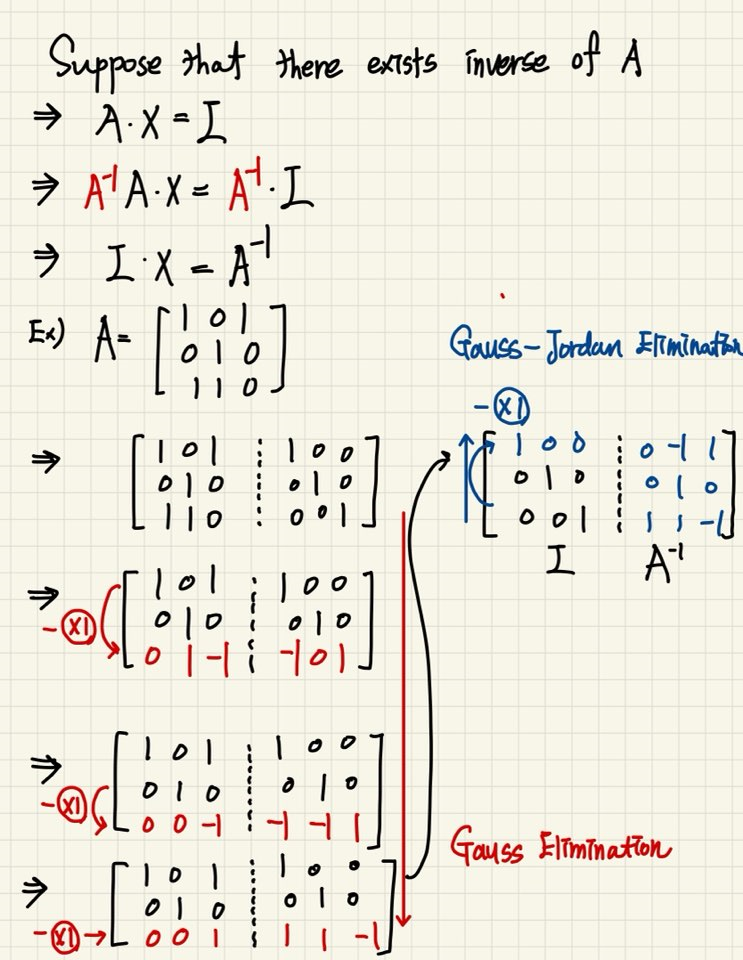 Suppose that there exists inverse of A
⇒ A·X = I
⇒ A⁻¹A·X = A⁻¹·I
⇒ I·X = A⁻¹
Ex) A= [1 0 1
0 1 0
1 1 0]
⇒ [1 0 1 ┊ 1 0 0
0 1 0 ┊ 0 1 0
1 1 0 ┊ 0 0 1]
⇒ [1 0 1 ┊ 1 0 0
-×1 0 1 0 ┊ 0 1 0
0 1 -1 ┊ -1 0 1]
⇒ [1 0 1 ┊ 1 0 0
-×1 0 1 0 ┊ 0 1 0
0 0 -1 ┊ -1 -1 1]
⇒ [1 0 1 ┊ 1 0 0
0 1 0 ┊ 0 1 0
-×1 → 0 0 1 ┊ 1 1 -1]
Gauss Elimination
Gauss-Jordan Elimination
-×1
[1 0 0 ┊ 0 -1 1
0 1 0 ┊ 0 1 0
0 0 1 ┊ 1 1 -1]
I A⁻¹